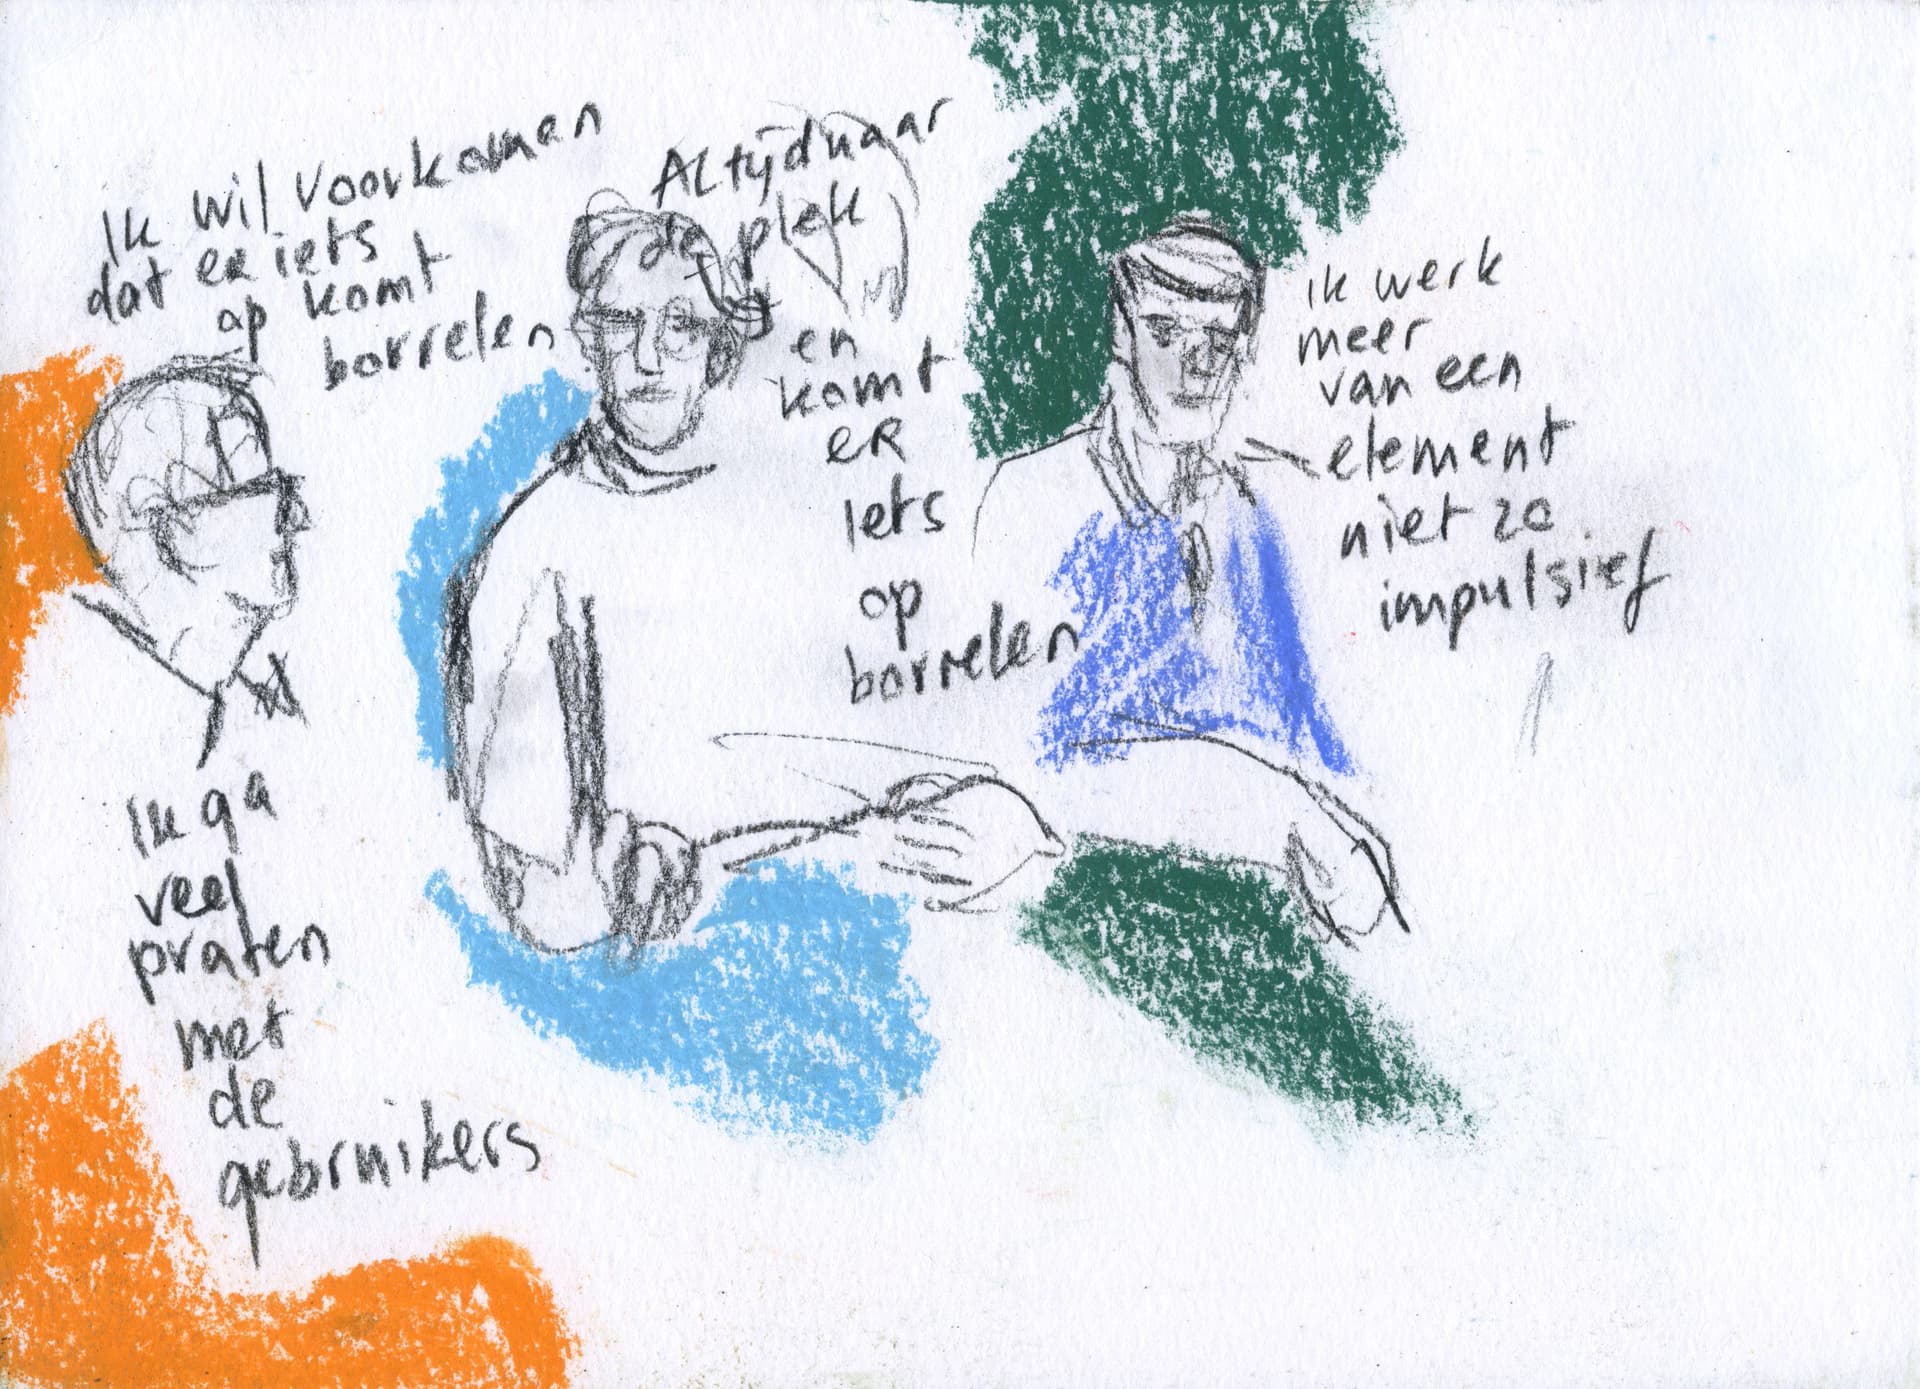 Ik wil voorkomen
dat er iets
op komt
borrelen
Altijd naar
de plek
en
komt
ER
Iets
op
borrelen
Ik werk
meer
van een
element
niet zo
impulsief
Ik ga
veel
praten
met
de
gebruikers